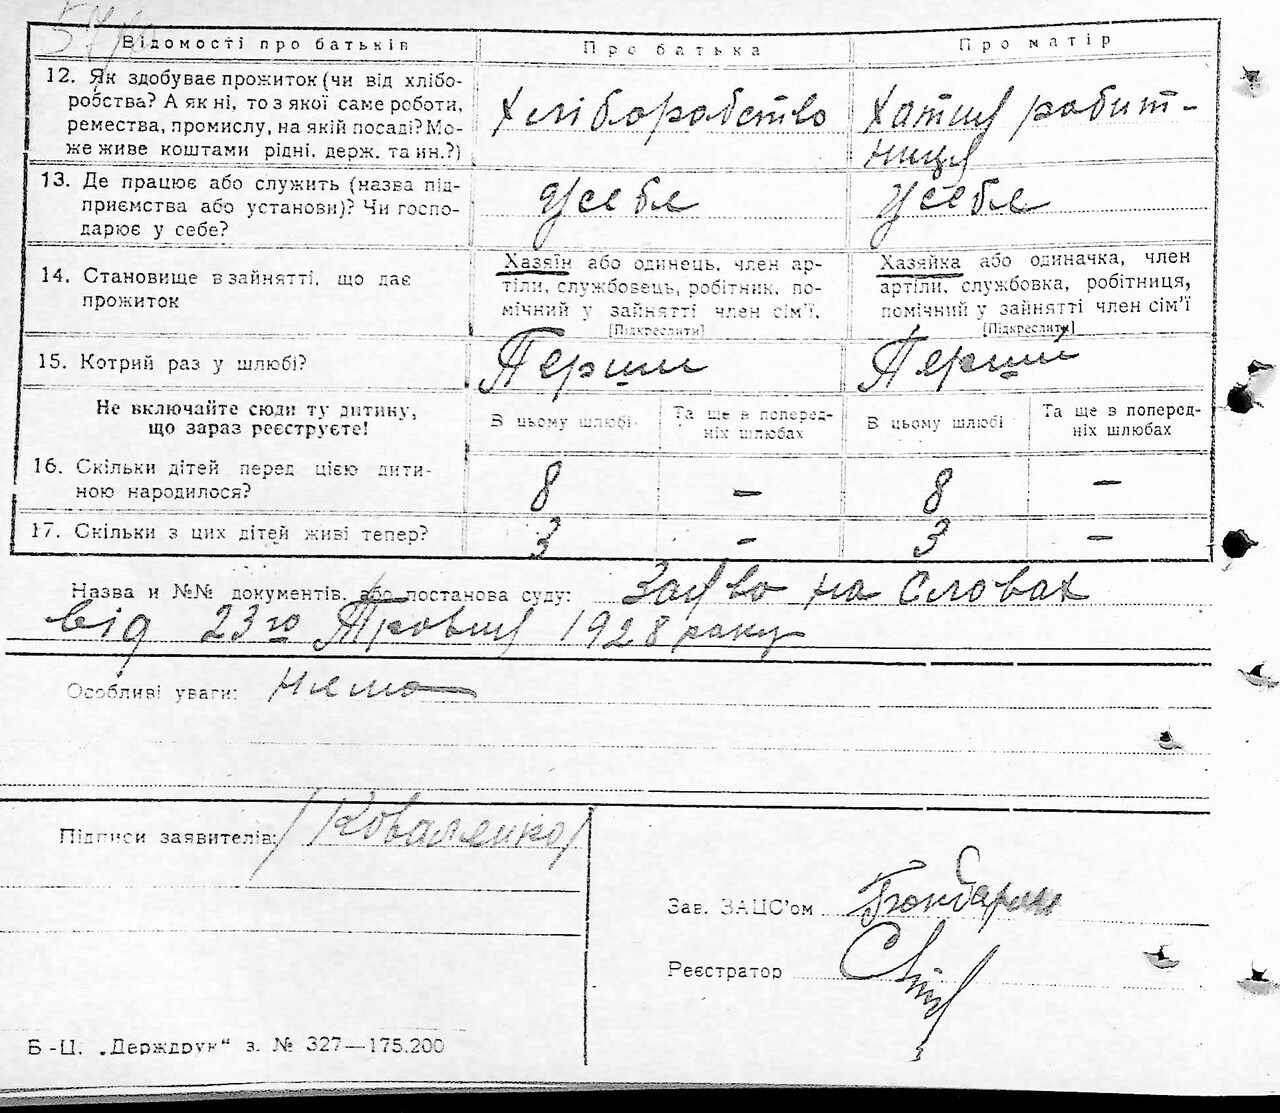 Відомості про батьків
Про батька
Про матір
12. Як здобуває прожиток (чи від хлібо-
робства? А як ні, то з якої саме роботи,
ремества, промислу, на якій посаді? Мо-
же живе коштами рідні, держ. та ин.?)
Хліборобство
Хатня робит-
ниця
13. Де працює або служить (назва під-
приємства або установи)? Чи госпо-
дарює у себе?
У себе
У себе
14. Становище в зайнятті, що дає
прожиток
Хазяїн або одинець, член ар-
тіли, службовець, робітник, по-
мічний у зайнятті член сім'ї.
[Підкреслити]
Хазяйка або одиначка, член
артіли, службовка, робітниця,
помічний у зайнятті член сім'ї
[Підкреслити]
15. Котрий раз у шлюбі?
Перший
Перший
Не включайте сюди ту дитину,
що зараз реєструєте!
В цьому шлюбі
Та ще в поперед-
ніх шлюбах
В цьому шлюбі
Та ще в поперед-
ніх шлюбах
16. Скільки дітей перед цією дити-
ною народилося?
8 – 8 –
17. Скільки з цих дітей живі тепер?
3 – 3 –
Назва и №№ документів, або постанова суду: Заява на словах
від 23го Травня 1928 року
Особливі уваги: нема
Підписи заявителів: /Коваленко/
Зав. ЗАЦС'ом
Реєстратор
Б-Ц. „Держдрук“ з. № 327—175.200